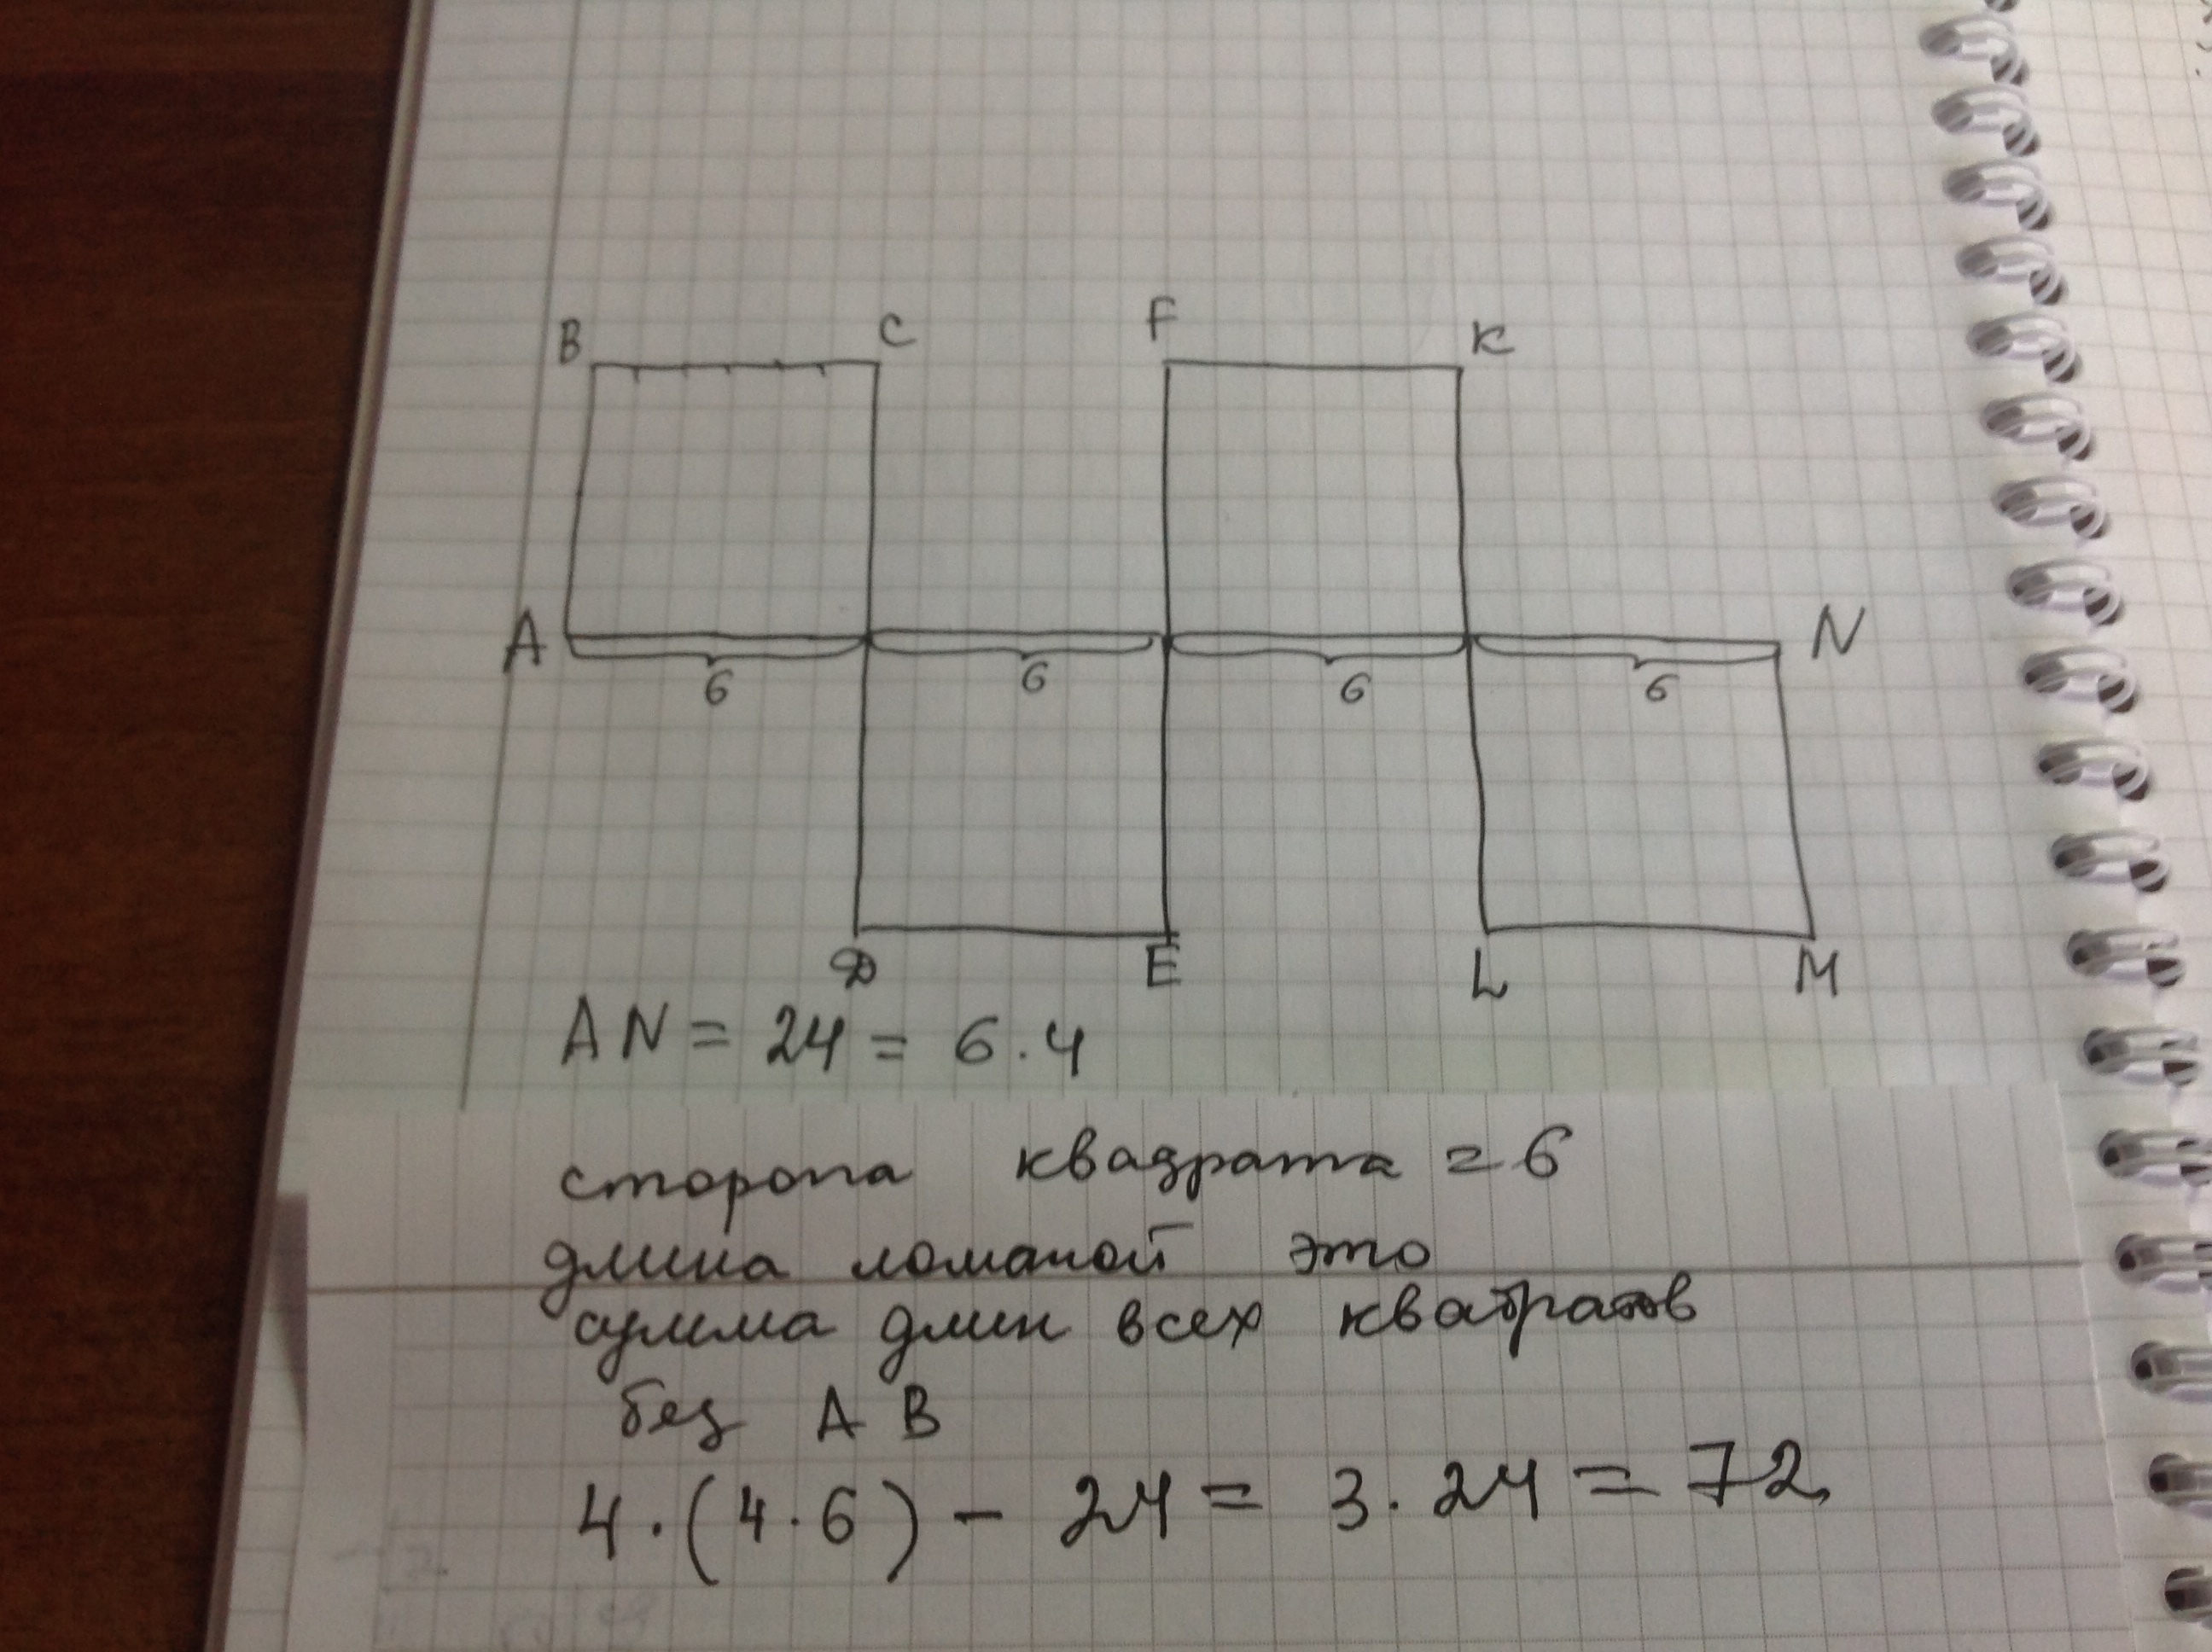 B C F K
A N
6 6 6 6
D E L M
AN = 24 = 6 · 4
сторона квадрата = 6
длина ломаной это
сумма длин всех квадратов
без A B
4 · (4 · 6) - 24 = 3 · 24 = 72